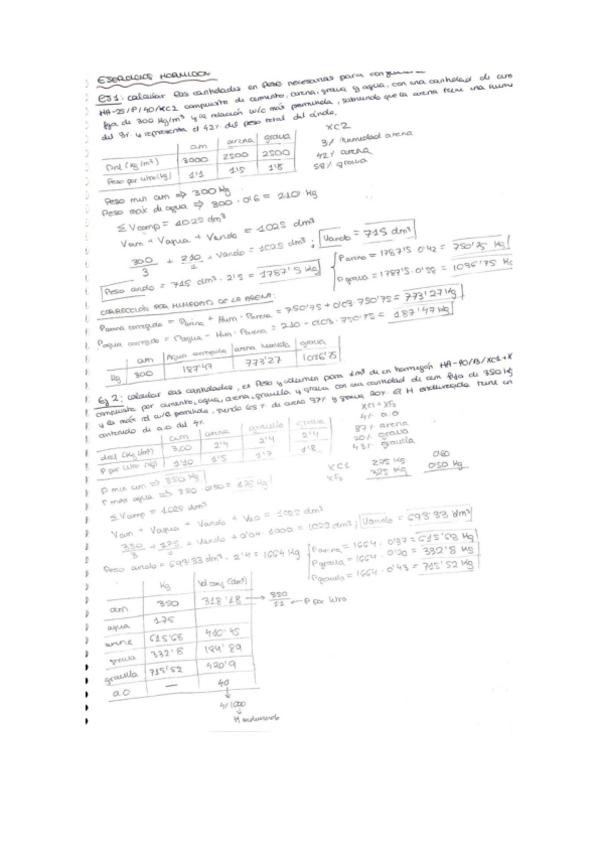 EJERCICIOS HORMIGÓN
EJ 1: calcular las cantidades en peso necesarias para
HA-25/P/40/XC2 compuesto de cemento, arena, grava y agua, con una cantidad de cem
fija de 300 kg/m³ y la relación w/c más permitida, sabiendo que la arena tiene una hume
del 3% y representa el 42% del peso total del árido.
XC2
3% humedad arena
42% arena
58% grava
cem arena grava
Dnd (kg/m³) 3000 2500 2500
Peso por litro (kg) 1'1 1'5 1'8
Peso min cem => 300 kg
Peso máx de agua => 300 · 0'6 = 210 kg
ΣVcomp = 1025 dm³
Vcem + Vagua + Varido = 1025 dm³
300/3 + 210/1 + Varido = 1025 dm³; Varido = 715 dm³
Peso arido = 715 dm³ · 2'5 = 1787'5 kg
Parena = 1787'5 · 0'42 = 750'75 kg
Pgrava = 1787'5 · 0'58 = 1036'75 kg
CORRECCIÓN POR HUMEDAD DE LA ARENA:
Parena corregido = Parena + Hum · Parena = 750'75 + 0'03 · 750'75 = 773'27 kg
Pagua corregido = Pagua - Hum · Parena = 210 - 0'03 · 750'75 = 187'47 kg
cem Agua corregida arena humeda grava
kg 300 187'47 773'27 1036'75
Ej 2: calcular las cantidades, en peso y volumen para 1m³ de un hormigón HA-40/B/ /XC1+X
compuesto por cemento, agua, arena, gravilla y grava con una cantidad de cem fija de 350 kg
y la máx rel a/c permitida, siendo 63% de arena 37% y grava 20%. El H endurecido tiene un
contenido de a.o del 4%.
XC1 + XF2
4% a.o
37% arena
20% grava
43% gravilla
cem arena gravilla grava
dnd (kg/dm³) 3'00 2'4 2'4 2'4
P por litro (kg) 1'10 1'5 1'7 1'8
XC1 275 kg 0'60
XF2 325 kg 0'50 kg
P min cem => 350 kg
P max agua => 350 · 0'50 = 175 kg
ΣVcomp = 1025 dm³
Vcem + Vagua + Varido + Vao = 1025 dm³
350/3 + 175/1 + Varido + 0'04 · 1000 = 1025 dm³; Varido = 693'33 dm³
Peso arido = 693'33 dm³ · 2'4 = 1664 kg
Parena = 1664 · 0'37 = 615'68 kg
Pgrava = 1664 · 0'20 = 332'8 kg
Pgravilla = 1664 · 0'43 = 715'52 kg
kg Vol conj (dm³)
cem 350 318'18 → 350/1'1 ← P por litro
agua 175
arena 615'68 410'45
grava 332'8 184'89
gravilla 715'52 420'9
a.o — 40
↓
4%1000
↓
H endurecido